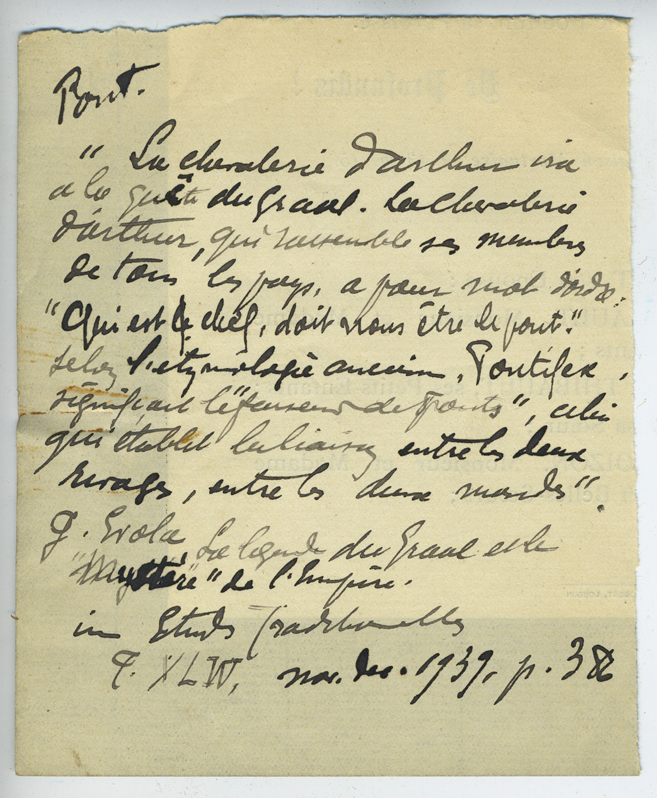 Pont.
" La chevalerie d'arthur ira
a la quête du graal. La chevalerie
d'arthur, qui rassemble ses membres
de tous les pays, a pour mot d'ordre:
"Qui est le chef, doit nous être le pont."
selon l'etymologie ancienne, Pontifex,
signifiait le "faiseur de ponts", celui
qui établit la liaison entre les deux
rivages, entre les deux mondes".
J. Evola La légende du Graal et le
"Mystère" de l'Empire.
in Etudes Traditionnelles
T. XLIV, nov. dec. 1939, p. 382